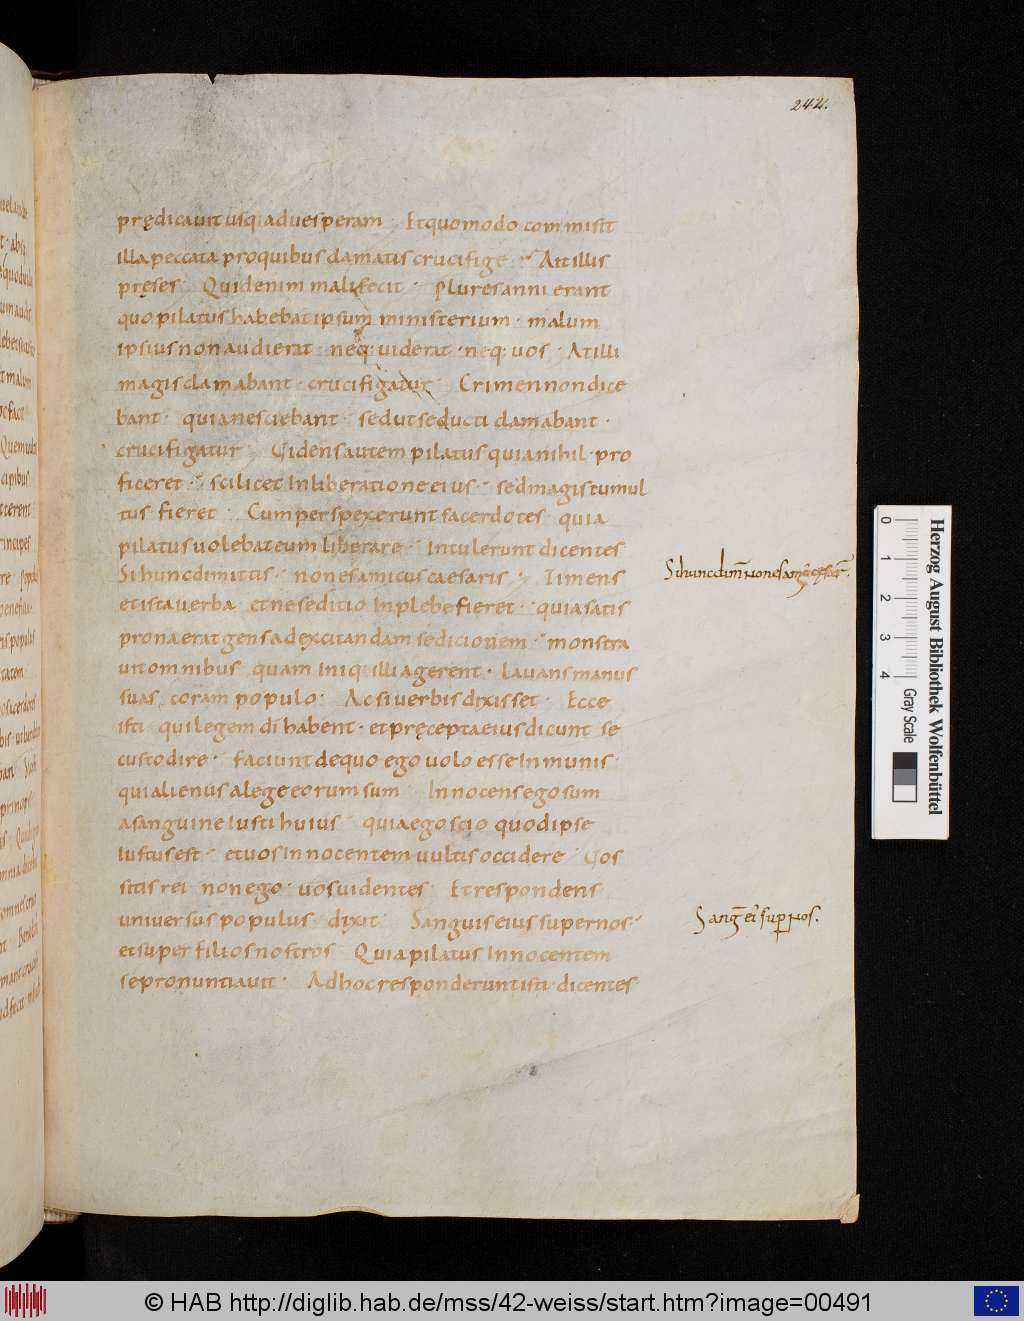 244.
prędicauit usq; ad uesperam · Et quomodo commisit
illa peccata pro quibus clamatis crucifige · At illis
pręses · Quid enim mali fecit · Plures anni erant
quo pilatus habebat ipsum ministerium · malum
ipsius non audierat · neq; uiderat · neq; uos · At illi
magis clamabant · crucifigatur · Crimen non dice
bant · quia nesciebant · sed ut seducti clamabant ·
crucifigatur · Uidens autem pilatus quia nihil pro
ficeret · scilicet In liberatione eius · sed magis tumul
tus fieret · Cum perspexerunt sacerdotes quia
pilatus uolebat eum liberare · Intulerunt dicentes
Si hunc dimittis · non es amicus caesaris · Timens
et ista uerba et ne seditio In plebe fieret · quia satis
prona erat gens ad excitandam sedicionem · monstra
uit omnibus quam Iniq; illi agerent · Lauans manus
suas coram populo · Ac si uerbis dixisset · Ecce
isti qui legem di habent · et pręcepta eius dicunt se
custodire · faciunt de quo ego uolo esse Inmunis ·
qui alienus a lege eorum sum · Innocens ego sum
a sanguine Iusti huius · quia ego scio quod ipse
Iustus est · et uos Innocentem uultis occidere · Uos
sitis rei non ego · uos uidentes · Et respondens
uniuersus populus dixit · Sanguis eius super nos ·
et super filios nostros · Quia pilatus Innocentem
se pronuntiauit · Ad hoc responderunt isti · dicentes
Si hunc dim̄
Sang̅ ei' sup nos.
0 1 2 3 4
Gray Scale
Herzog August Bibliothek Wolfenbüttel
© HAB http://diglib.hab.de/mss/42-weiss/start.htm?image=00491